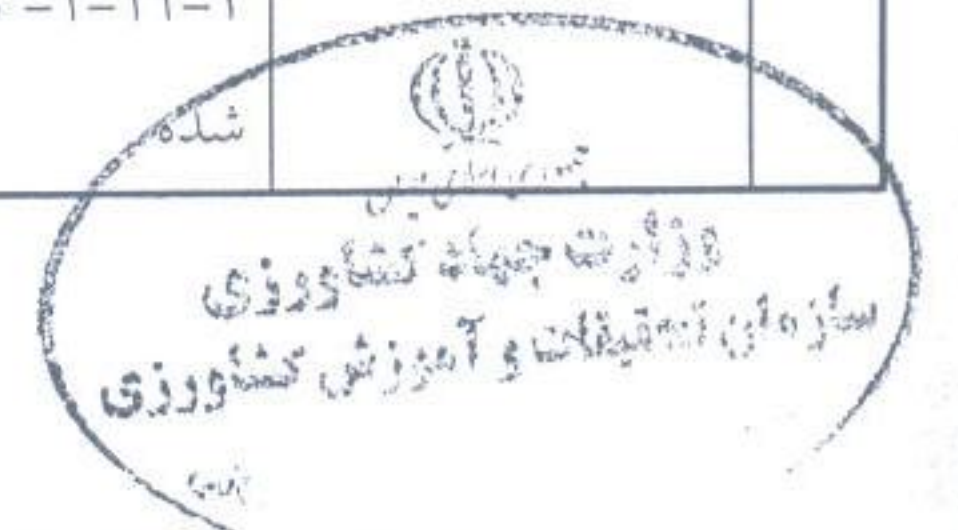 ۱-۱-۱۱-۲
شده
جمهوری اسلامی ایران
وزارت جهاد کشاورزی
سازمان تحقیقات و آموزش کشاورزی